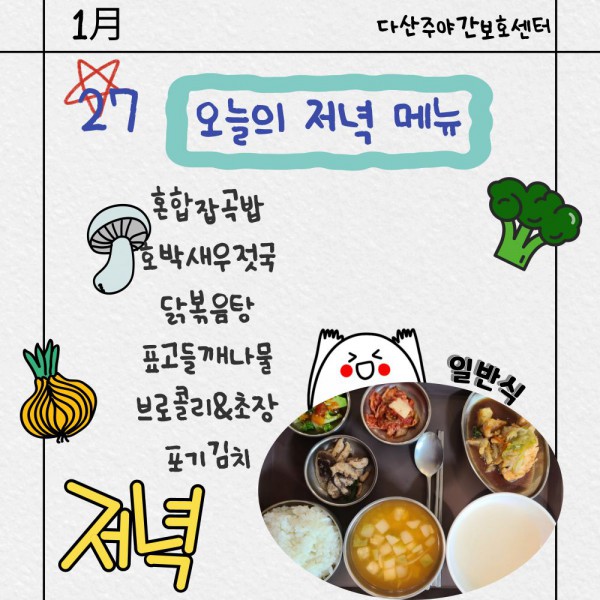 1月
다산주야간보호센터
27
오늘의 저녁 메뉴
혼합잡곡밥
호박새우젓국
닭볶음탕
표고들깨나물
브로콜리&초장
포기김치
일반식
저녁